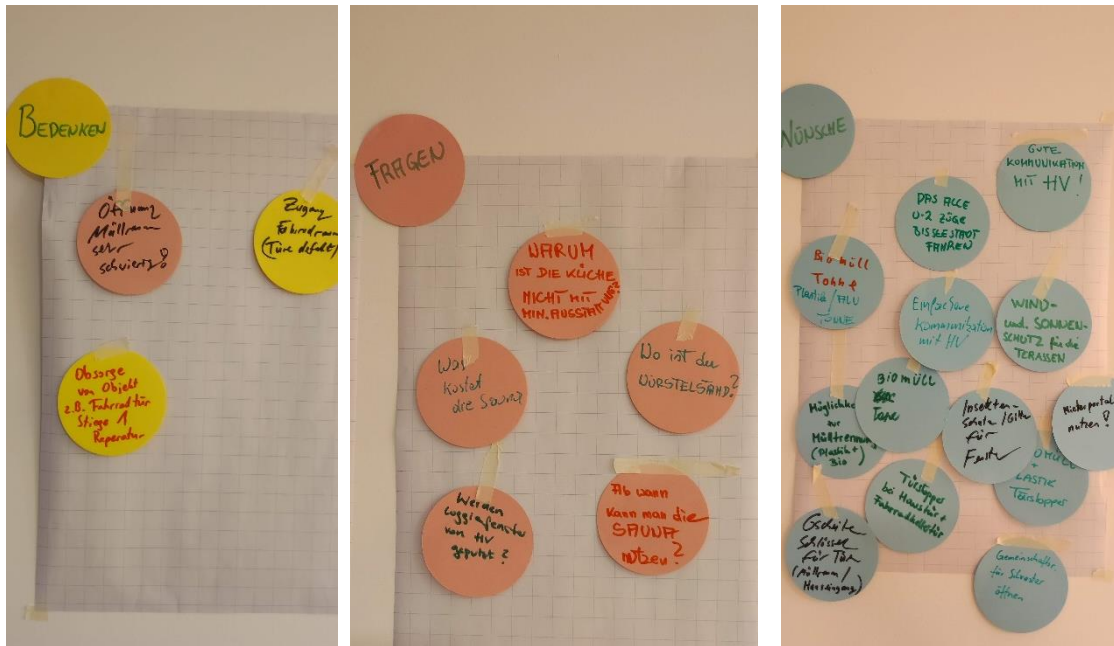 BEDENKEN
Öffnung
Müllraum
sehr
schwierig!
Zugang
Fahrradraum
(Türe defekt)
Obsorge
von Objekt
z.B. Fahrradtür
Stiege 1
Reperatur
FRAGEN
WARUM
IST DIE KÜCHE
NICHT MIT
MIN. AUSSTATTUNG?
Was
kostet
die Sauna
Wo ist der
WÜRSTELSTAND?
Werden
Loggiafenster
von HV
geputzt?
Ab wann
kann man die
SAUNA
nützen?
WÜNSCHE
GUTE
KOMMUNIKATION
MIT HV!
DAS ALLE
U-2 ZÜGE
BIS SEESTADT
FAHREN
Bio müll
Tonne
Plastik/ALU
TONNE
Einfachere
Kommunikation
mit HV
WIND-
und SONNEN-
SCHUTZ für die
TERASSEN
Möglichkeit
zur
Mülltrennung
(Plastik +
Bio
BIOMÜLL
Insekten-
schutz/Gitter
für
Fenster
Mieterportal
nutzen!
BIOMÜLL
+
PLASTIK
Türstopper
Türstopper
bei Haustür +
Fahrradkellertür
Gscheite
Schlösser
für Türen
(Müllraum/
Hauseingang)
für
öffnen